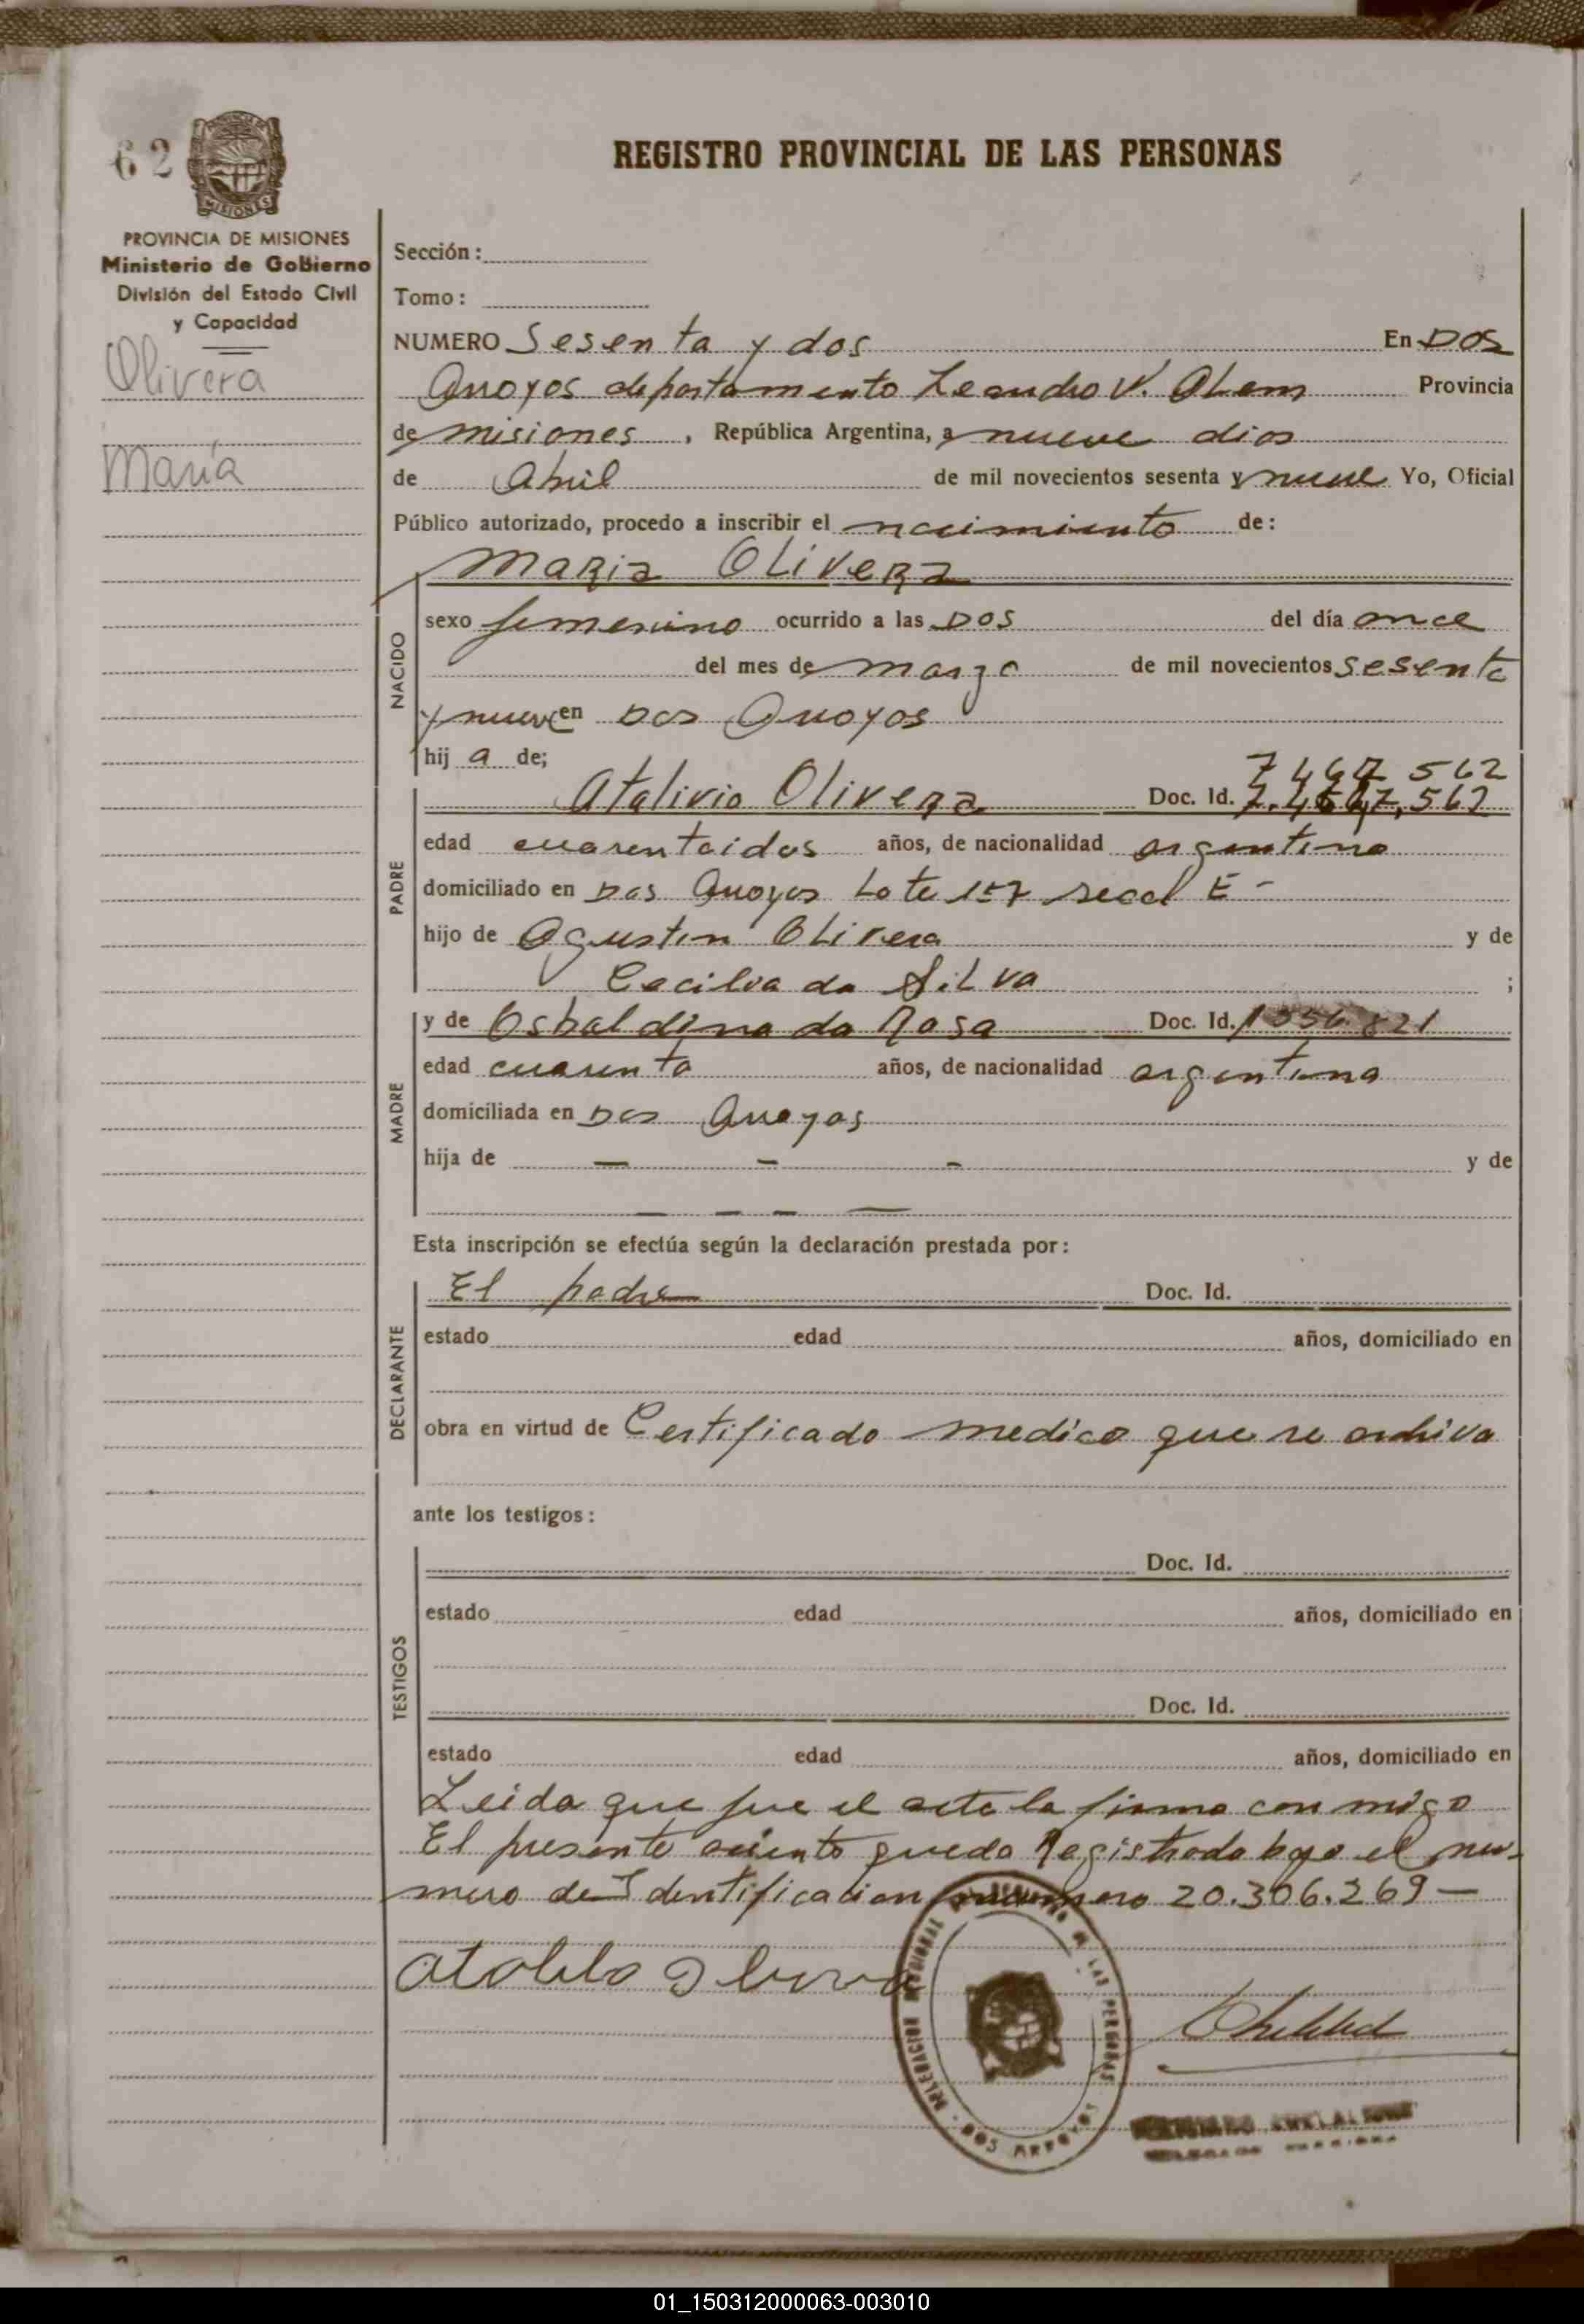 62
PROVINCIA DE MISIONES
MISIONES
PROVINCIA DE MISIONES
Ministerio de Gobierno
División del Estado Civil
y Capacidad
Olivera
María
REGISTRO PROVINCIAL DE LAS PERSONAS
Sección:
Tomo:
NUMERO Sesenta y dos En Dos
Arroyos departamento Leandro N. Alem Provincia
de misiones, República Argentina, a nueve dias
de Abril de mil novecientos sesenta y nueve Yo, Oficial
Público autorizado, procedo a inscribir el nacimiento de:
Maria Olivera
NACIDO
sexo femenino ocurrido a las Dos del día once
del mes de marzo de mil novecientos sesenta
y nueve en Dos Arroyos
hij a de;
PADRE
7 467 562
Atalivio Olivera Doc. Id. 7.467,562
edad cuarentaidos años, de nacionalidad argentino
domiciliado en Dos Arroyos Lote 157 E-
hijo de Agustin Olivera y de
Cecilia da Silva ;
MADRE
y de Osbaldina da Rosa Doc. Id.
edad cuarenta años, de nacionalidad argentina
domiciliada en Dos Arroyos
hija de — - - y de
— - - —
Esta inscripción se efectúa según la declaración prestada por:
DECLARANTE
El padre Doc. Id.
estado edad años, domiciliado en
obra en virtud de Certificado medico que se archiva
ante los testigos:
TESTIGOS
Doc. Id.
estado edad años, domiciliado en
Doc. Id.
estado edad años, domiciliado en
Leida que fue el acta la firma con migo
El presente asiento queda Registrado bajo el nu-
mero de Identificacion numero 20.306.269—
DELEGACION REGIONAL DE LAS PERSONAS
DOS ARROYOS
01_150312000063-003010